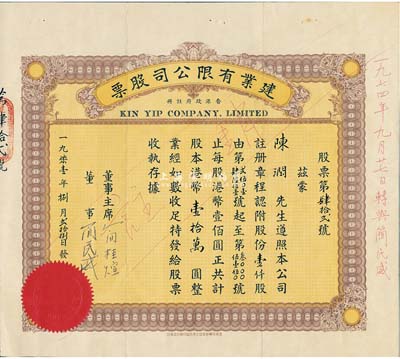 票股司公限有業建
香港政府註冊
KIN YIP COMPANY, LIMITED
股票第肆拾弍號
茲蒙
陳潤先生遵照本公司
註冊章程認附股份壹仟股
由第 號起至第 號
止每股港幣壹佰圓正共計
股本港幣壹拾萬圓整
業經如數收足特發給股票
收執存據
董事主席
董事 簡民威
一九柒壹年捌月弍拾捌日發
一九七四年九月廿七日轉與簡民威